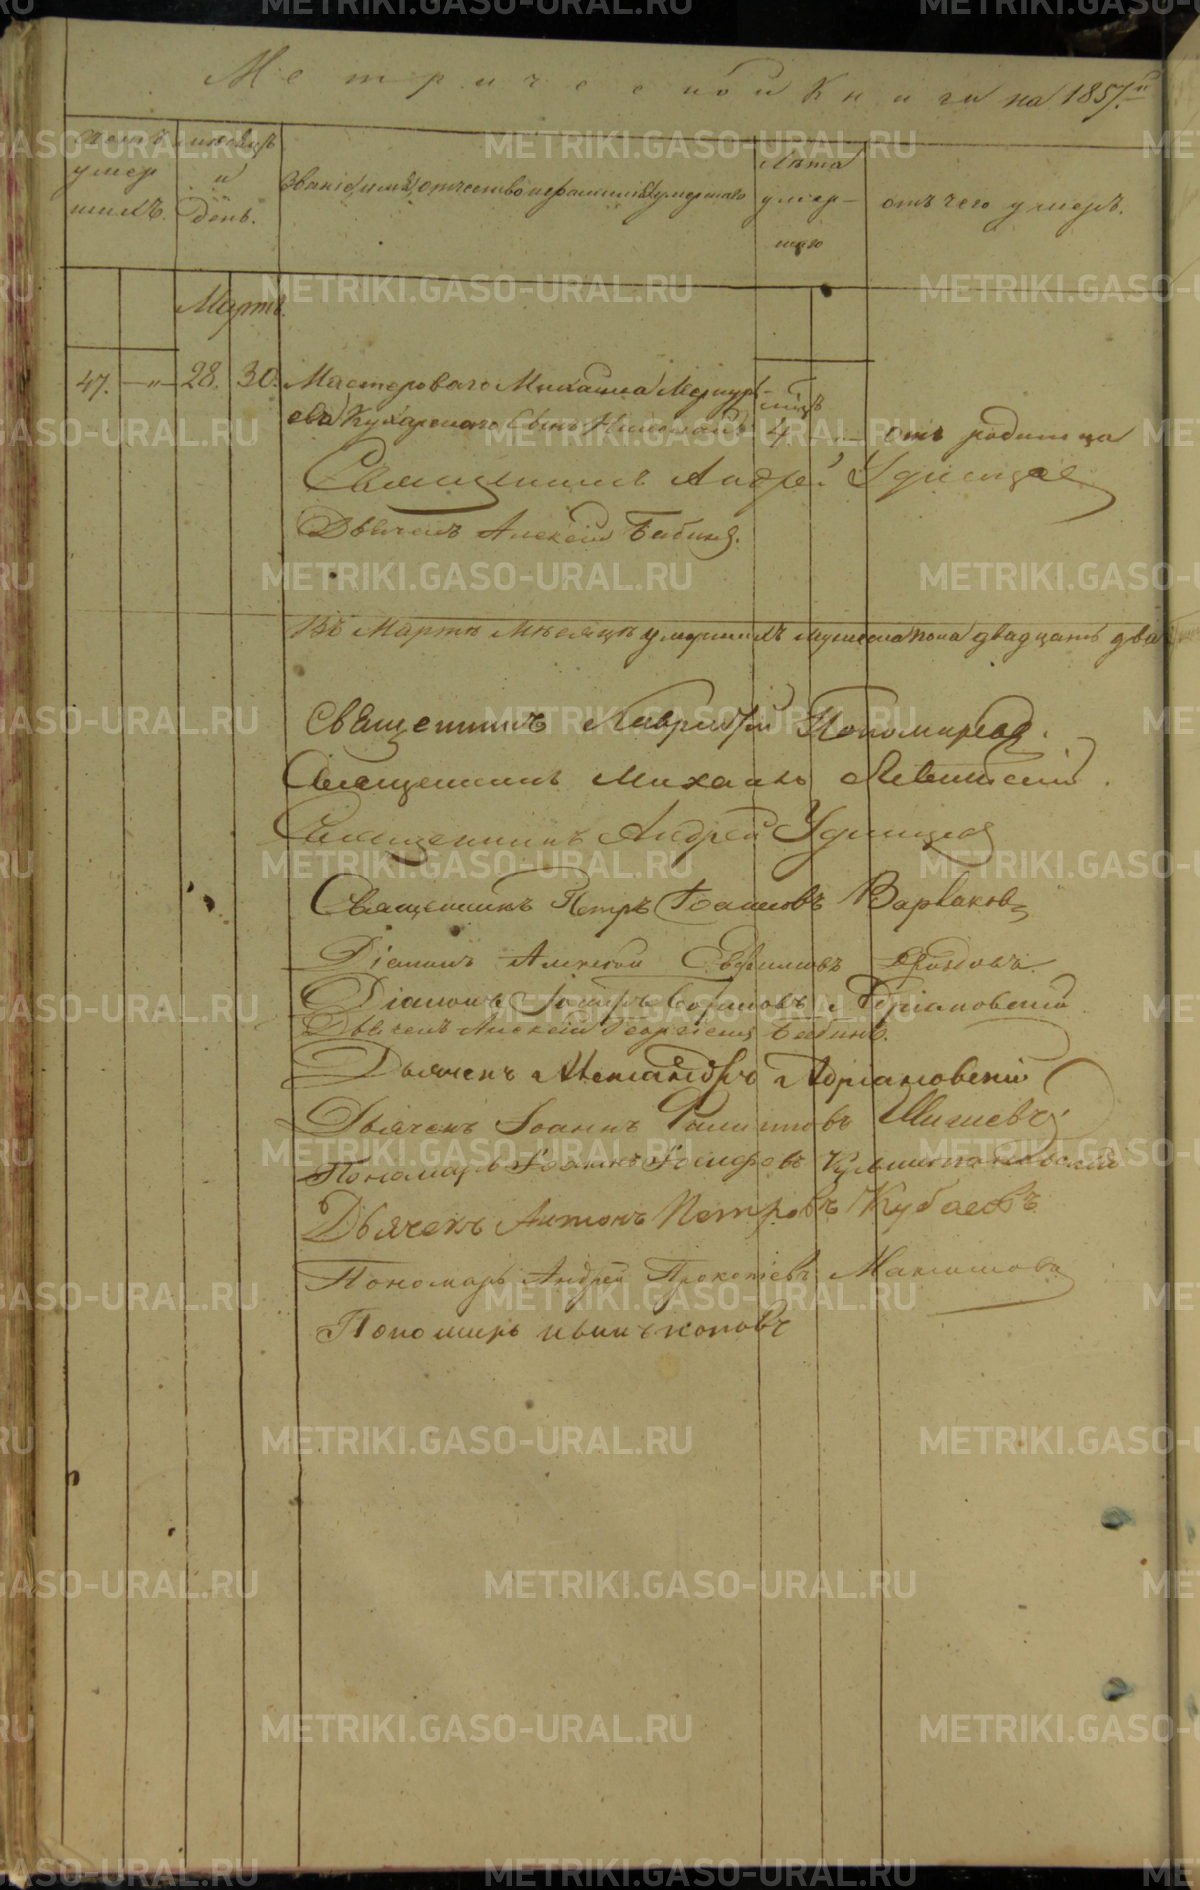 Метрической Книги на 1857й
Счетъ
умер
шихъ.
мѣсяцъ
и
день.
Званіе, имя, отчество и фамилія умершаго
Лѣта
умер–
шаго
отъ чего умеръ.
Мартъ.
47. —„— 28. 30. Мастероваго Михаила Меркурь–
ева Кухарскаго Сынъ 4 мцъ отъ родимца
Священникъ Андрей Удинцев
Дьячекъ Алексій Бабинъ.
Въ Мартѣ Мѣсяцѣ умершихъ мужеска пола двадцать два
Священникъ Пономаревъ.
Священникъ Михаилъ Левитскій.
Священникъ Андрей Удинцев
Священникъ Петръ Іоанновъ Варваковъ
Діаконъ Алексей Евфимовъ
Діаконъ Адріановскій
Дьячекъ Алексій Георгіевъ Бабинъ.
Дьячекъ Александръ Адріановскій
Дьячекъ Іоаннъ Филипповъ Шишевъ
Пономарь Іоаннъ Іосифовъ
Дьячекъ Антонъ Петровъ Кубаевъ
Пономарь Андрей Прокопіевъ Максимовъ
Пономарь
METRIKI.GASO-URAL.RU